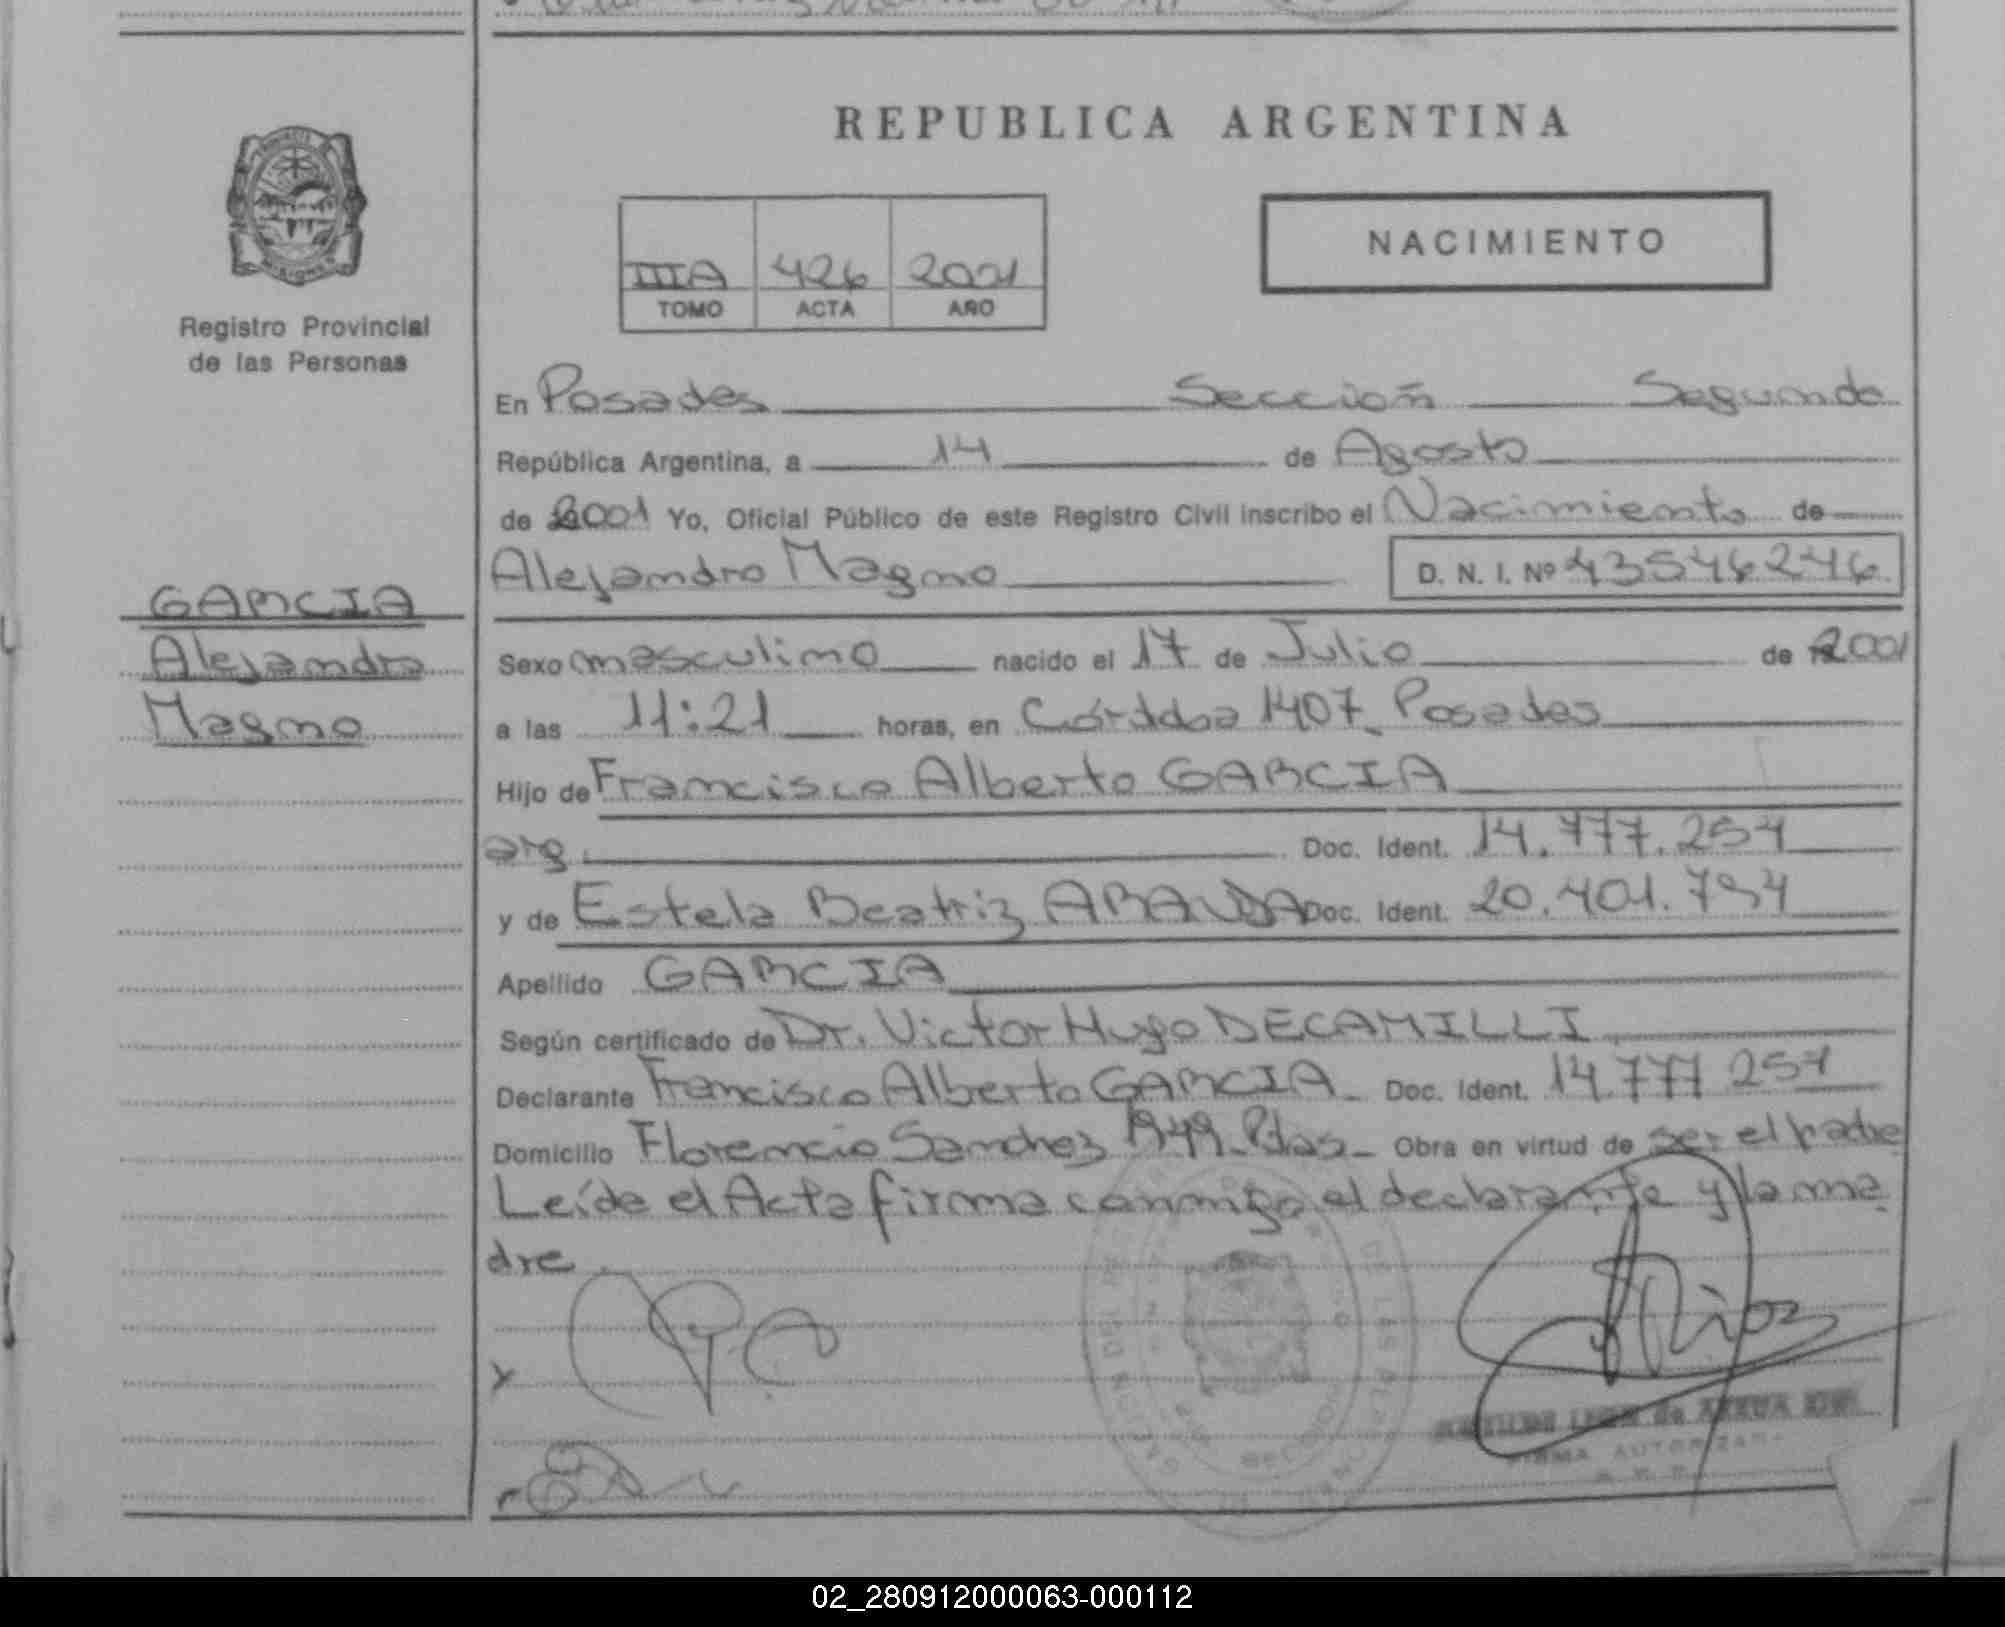 REPUBLICA ARGENTINA
NACIMIENTO
IIIA 426 2001
TOMO ACTA AÑO
Registro Provincial
de las Personas
En Posadas Sección Segunda
República Argentina, a 14 de Agosto
de 2001 Yo, Oficial Público de este Registro Civil inscribo el Nacimiento de
Alejandro Magno D. N. I. Nº 43546246
GARCIA
Alejandro
Magno
Sexo masculino nacido el 17 de Julio de 2001
a las 11:21 horas, en Córdoba 1407 Posadas
Hijo de Francisco Alberto GARCIA
arg. Doc. Ident. 14.777.257
y de Estela Beatriz ARANDA Doc. Ident. 20.401.794
Apellido GARCIA
Según certificado de Dr. Victor Hugo DECAMILLI
Declarante Francisco Alberto GARCIA Doc. Ident. 14.777.257
Domicilio Florencio Sanchez 1949 Pdas. Obra en virtud de ser el padre
Leída el Acta firma conmigo el declarante y la ma
dre.
FIRMA AUTORIZADA
02_280912000063-000112